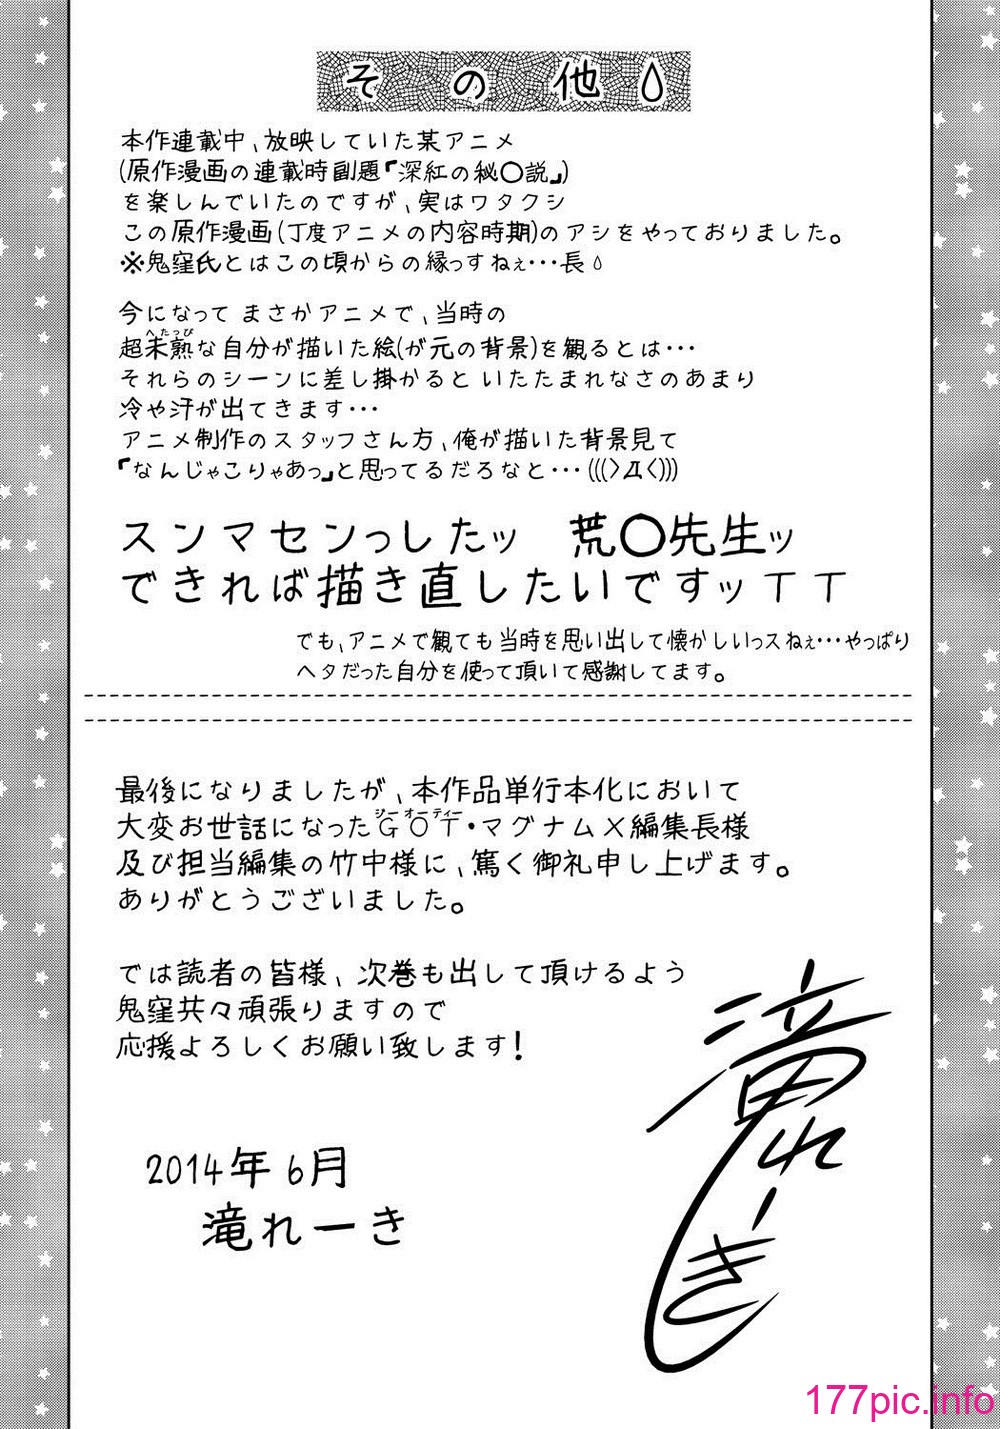 その他
本作連載中、放映していた某アニメ
(原作漫画の連載時副題『深紅の秘〇説』)
を楽しんでいたのですが、実はワタクシ
この原作漫画(丁度アニメの内容時期)のアシをやっておりました。
※鬼窪氏とはこの頃からの縁っすねぇ・・・長
今になって まさかアニメで、当時の
へたっぴ
超未熟な自分が描いた絵(が元の背景)を観るとは・・・
それらのシーンに差し掛かると いたたまれなさのあまり
冷や汗が出てきます・・・
アニメ制作のスタッフさん方、俺が描いた背景見て
『なんじゃこりゃあっ』と思ってるだろなと・・・(((>Д<)))
スンマセンっしたッ 荒〇先生ッ
できれば描き直したいですッTT
でも、アニメで観ても当時を思い出して懐かしいっスねぇ・・・やっぱり
ヘタだった自分を使って頂いて感謝してます。
最後になりましたが、本作品単行本化において
ジーオーティー
大変お世話になったGOT・マグナムX編集長様
及び担当編集の竹中様に、篤く御礼申し上げます。
ありがとうございました。
では読者の皆様、次巻も出して頂けるよう
鬼窪共々頑張りますので
応援よろしくお願い致します!
2014年6月
滝れーき
滝れーき
177pic.info